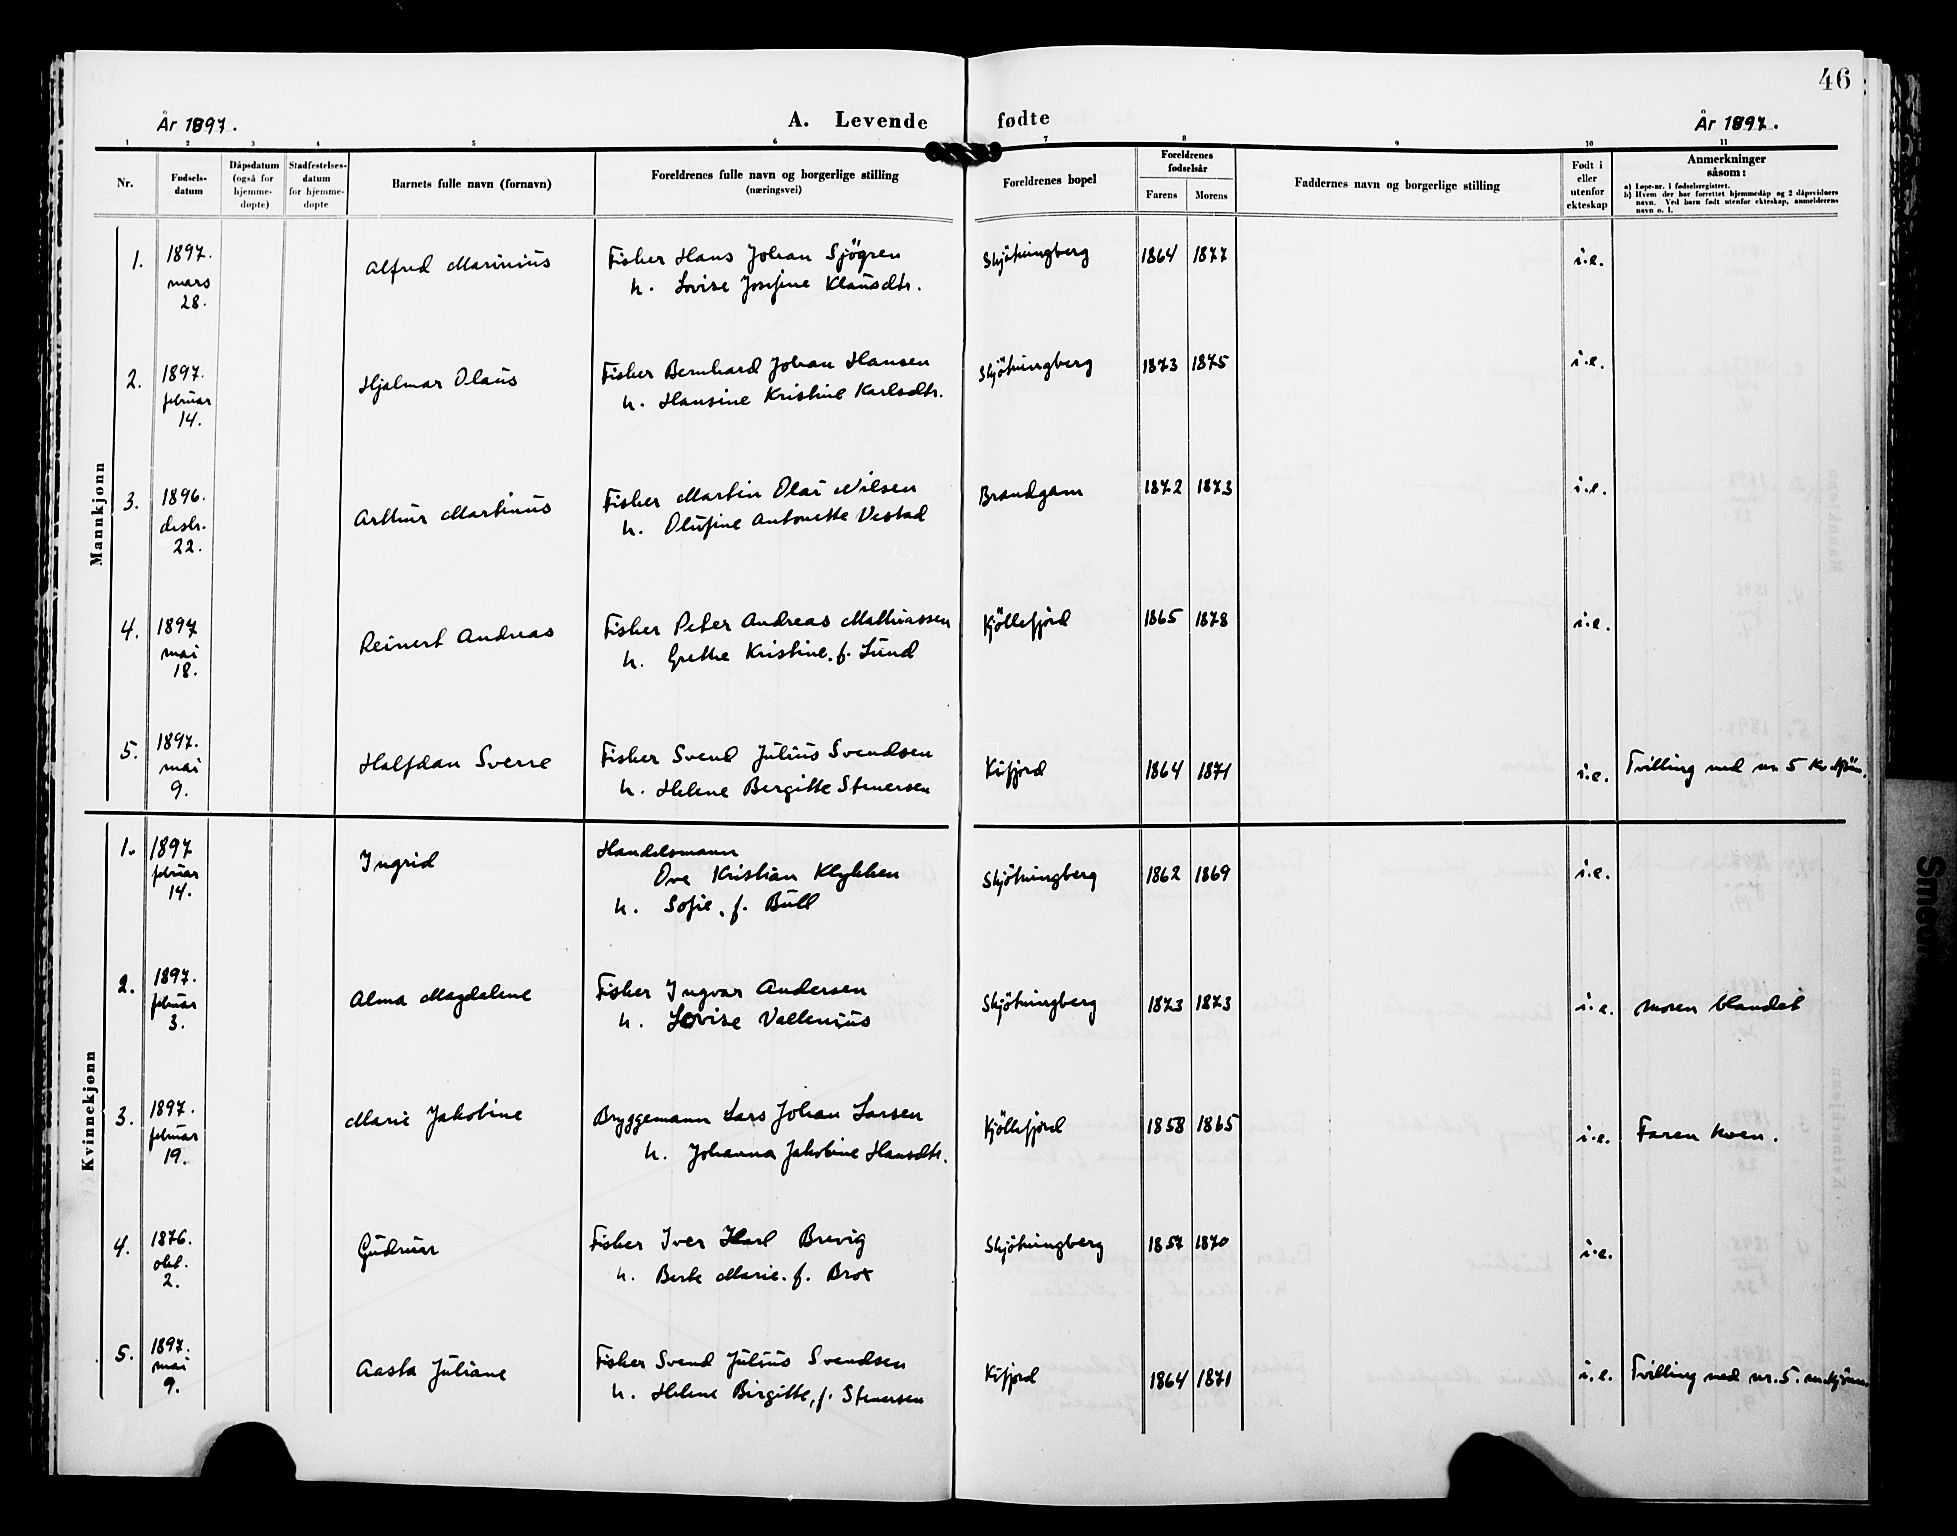 46
År 1897.
A. Levende fødte
År 1897.
1 2 3 4 5 6 7 8 9 10 11
Nr.
Fødsels-
datum
Dåpsdatum
(også for
hjemme-
døpte)
Stadfestelses-
datum
for hjemme-
døpte
Barnets fulle navn (fornavn)
Foreldrenes fulle navn og borgerlige stilling
(næringsvei)
Foreldrenes bopel
Foreldrenes
fødselsår
Farens Morens
Faddernes navn og borgerlige stilling
Født i
eller
utenfor
ekteskap
Anmerkninger
såsom:
a) Løpe-nr. i fødselsregistret.
b) Hvem der har forrettet hjemmedåp og 2 dåpsvidners
navn. Ved barn født utenfor ekteskap, anmelderens
navn o. l.
Mannkjønn
1. 1897. Alfred Marinius Fisker Hans Johan Sjögren Skjötningberg 1864 1877 i.e.
mars h. Lovise Josefine Klausdtr.
28.
2. 1897. Hjalmar Olaus Fisker Bernhard Johan Hansen Skjötningberg 1873 1875 i.e.
februar h. Hansine Kristine Karlsdtr.
14.
3. 1896. Arthur Martinus Fisker Martin Olai Nilsen Brandgam 1872 1873 i.e.
desbr. h. Olufine Antonette Vestad
22.
4. 1897 Reinert Andreas Fisker Peter Andreas Mathiassen Kjöllefjörd 1865 1878 i.e.
mai h. Grethe Kristine. f. Lund
18.
5. 1897. Halfdan Sverre Fisker Svend Julius Svendsen Kifjord 1864 1871 i.e. Tvilling med nr 5 Kv.kjön.
mai h. Helene Bergitte Stenersen
9.
Kvinnekjønn
1. 1897 Ingrid Handelsmann Skjötningberg 1862 1869 i.e.
februar Ove Kristian Klykken
14. h. Sofie, f. Bull
2. 1897. Alma Magdalene Fisker Ingvar Andersen Skjötningberg 1873 1873 i.e. Moren blandet
februar h. Lovise Vallenius
3.
3. 1897. Marie Jakobine Bryggemann Lars Johan Larsen Kjöllefjord 1858 1865 i.e. Faren kven.
februar h. Johanna Jakobine Hansdtr.
19.
4. 1876. Gudrun Fisker Iver Karl Brevig Skjötningberg 1857 1870 i.e.
okt. h. Berte Marie. f. Brox
2.
5. 1897. Aasta Juliane Fisker Svend Julius Svendsen Kifjord 1864 1871 i.e. Tvilling med nr. 5. m.kjönn.
mai h. Helene Birgitte, f. Stenersen
9.